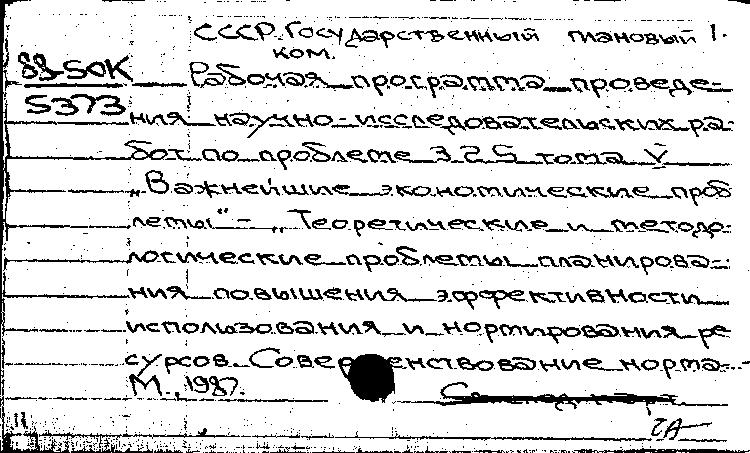 СССР. Государственный плановый 1.
ком.
88-50К
5373
Рабочая программа проведе-
ния научно-исследовательских ра-
бот по проблеме 3.2.5 тома V
„Важнейшие экономические проб
лемы" - „Теоретические и методо-
логические проблемы планирова-
ния повышения эффективности
использования и нормирования ре
сурсов. Совершенствование норма-
М., 1987.